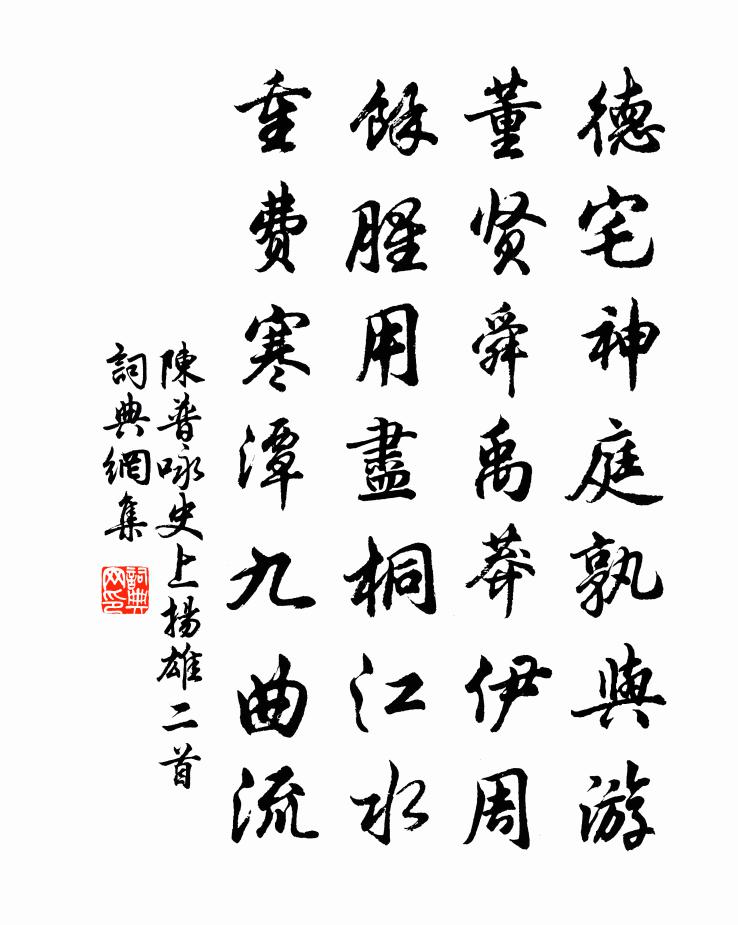 德宅神庭孰與游
董贤舜禹莽伊周
餘腥用盡桐江水
重費寒潭九曲流
陳普咏史上揚雄二首
詞典網集
詞典网印